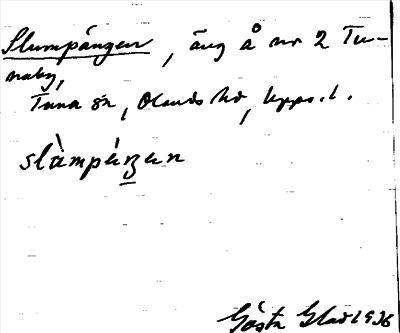 Slumpängen, äng å nr 2 Tu-
naby,
Tuna sn, Olands hd, Upps. l.
slùmpáŋen
Gösta Glad 1936